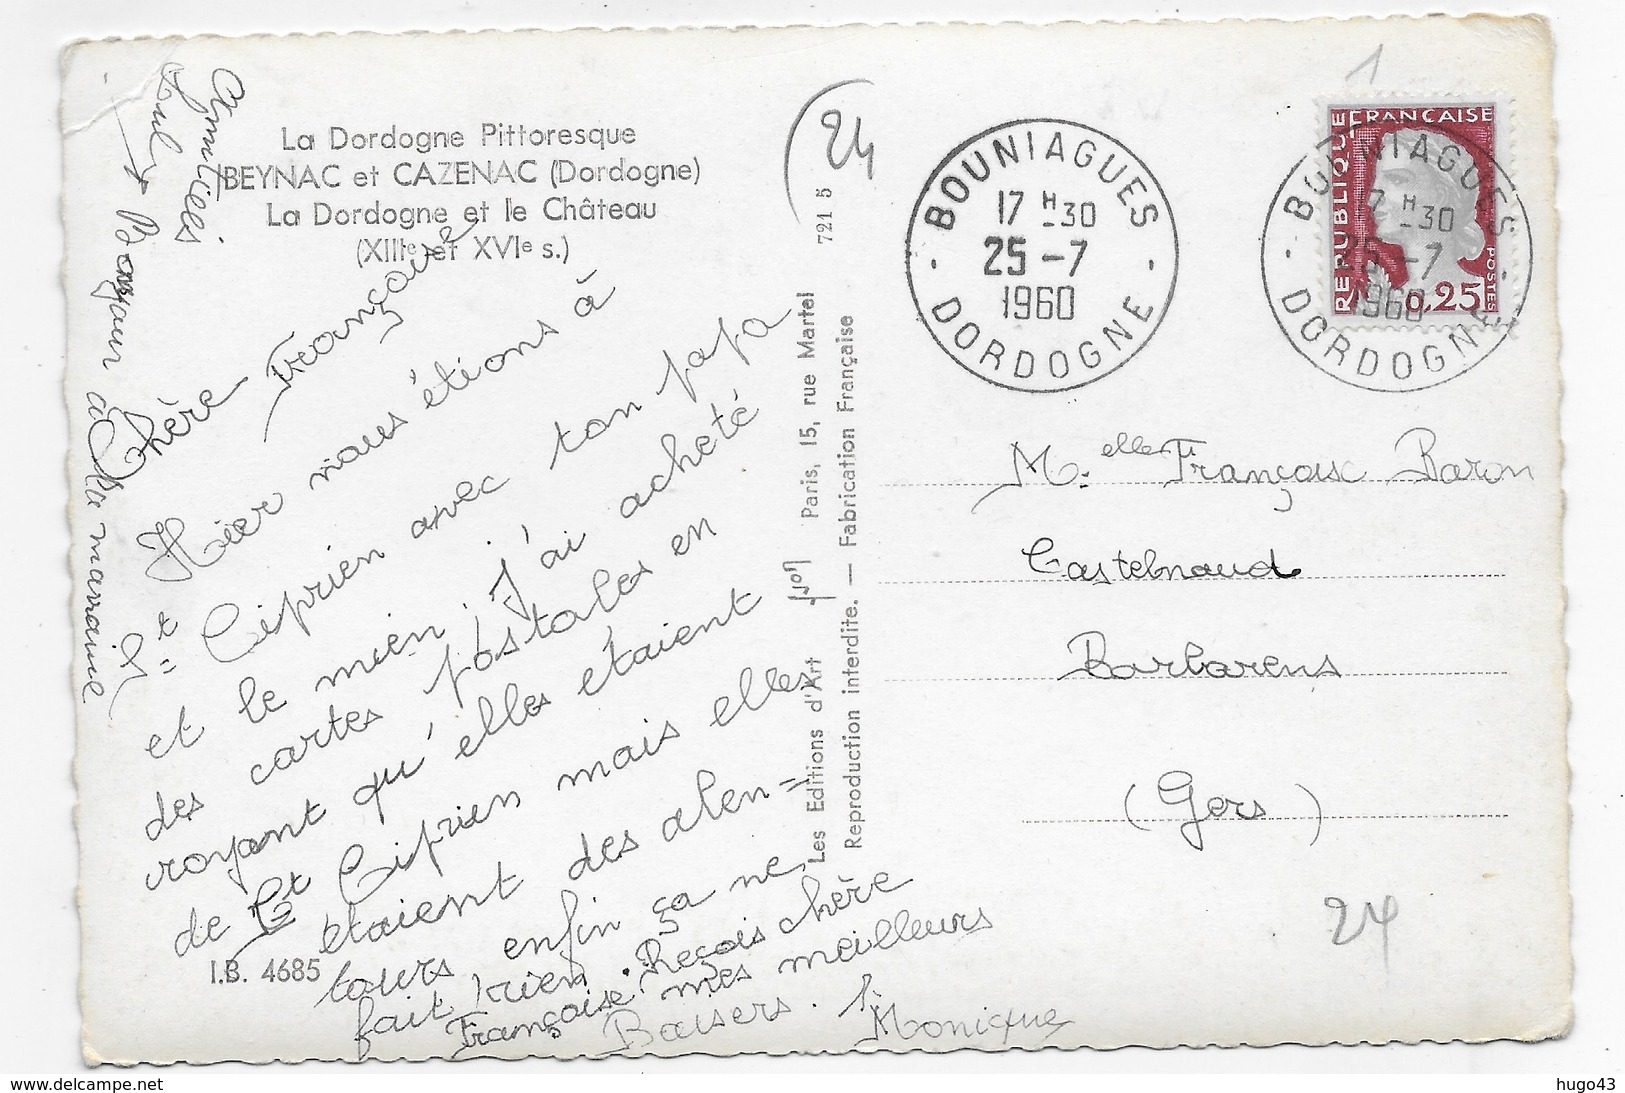 La Dordogne Pittoresque
BEYNAC et CAZENAC (Dordogne)
La Dordogne et le Château
(XIIIe et XVIe s.)
Chère Françoise
Hier nous étions à
St Ciprien avec ton papa
et le mien, j'ai acheté
des cartes postales en
royant qu'elles étaient
de St Ciprien mais elles
étaient des alen=
tours enfin ça ne
fait rien. Reçois chère
Françoise mes meilleurs
Baisers.
Monique
Amitiés
Bonjour à Ma marraine
I.B. 4685
Les Editions d'Art Yvon Paris, 15, rue Martel 721 5
Reproduction interdite. — Fabrication Française
24
BOUNIAGUES
17 H 30
25 -7
1960
DORDOGNE
RÉPUBLIQUE FRANÇAISE
POSTES
0,25
BOUNIAGUES
17 H 30
25 -7
1960
DORDOGNE
1
Melle Françoise Baron
Castelnaud
Barbarens
(Gers)
24
delcampe.net
hugo43